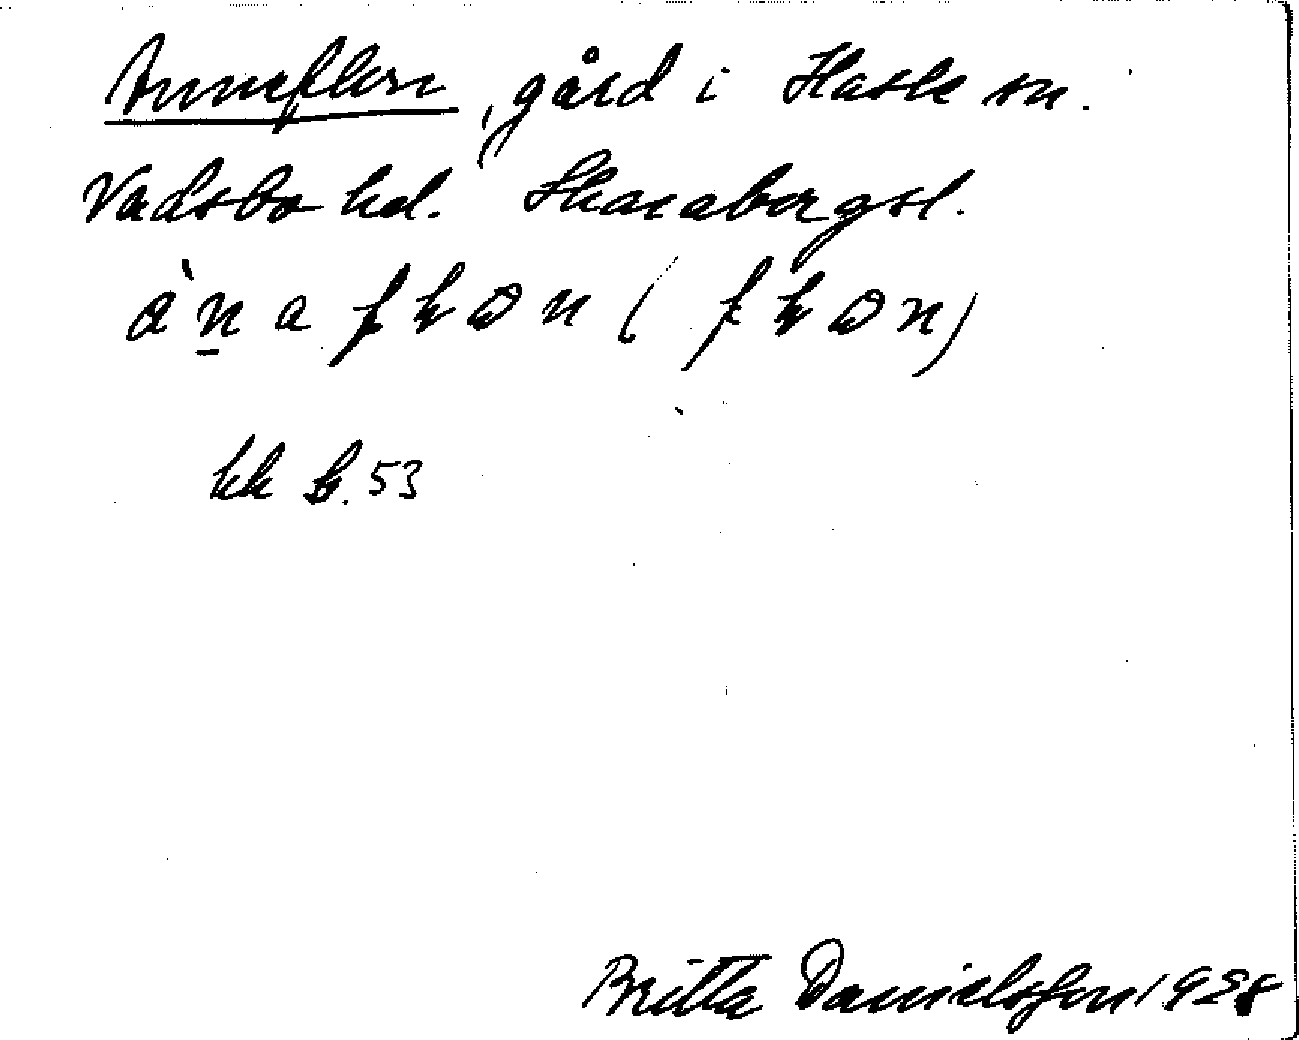 Annefors, gård i Hassle sn.
Vadsbo hd. Skaraborgsl.
kk b. 53
Britta Danielsson 1928